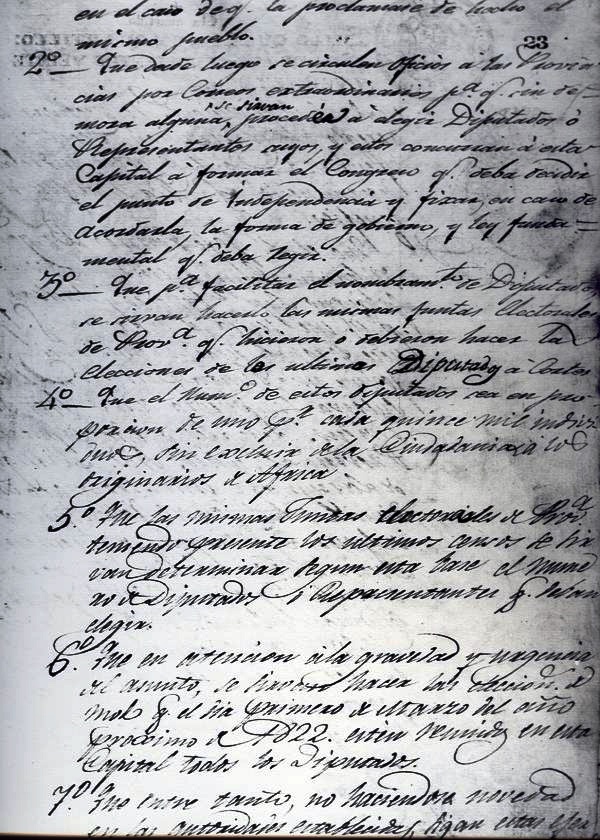 en el caso de q.e la proclamase de hecho el
mismo pueblo.
23
2.º Que desde luego se circulen oficios à las Provin
cias por Correos extraordinarios p.a q.e sin de-
mora alguna, se sirvan proceder à elegir Diputados ò
Representantes suyos, y estos concurran à esta
Capital à formar el Congreso q.e deba decidir
el punto de independencia y fixar, en caso de
acordarla, la forma de gobierno, y ley funda=
mental q.e deba regir.
3.º Que p.a facilitar el nombram.to de Diputados
se sirvan hacerlo las mismas Juntas Electorales
de Prov.a q.e hicieron o debieron hacer la
elecciones de los ultimos Diputados à Cortes
4.º Que el Num.o de estos diputados sea en pro
porcion de uno p.r cada quince mil indivi
duos, sin excluir de la Ciudadania à los
originarios de Africa
5.º Que las mismas Juntas electorales de Prov.a
teniendo presente los ultimos censos se sir
van determinar segun esta base el nume
ro de Diputados ó Representantes q.e deban
elegir.
6.º Que en atencion à la gravedad y urgencia
del asunto, se sirvan hacer las eleccion.s de
modo q.e el dia primero de Marzo del año
proximo de 1822. estén reunidos en esta
Capital todos los Diputados.
7.º Que entre tanto, no haciendose novedad
en las autoridades establecidas, sigan estas